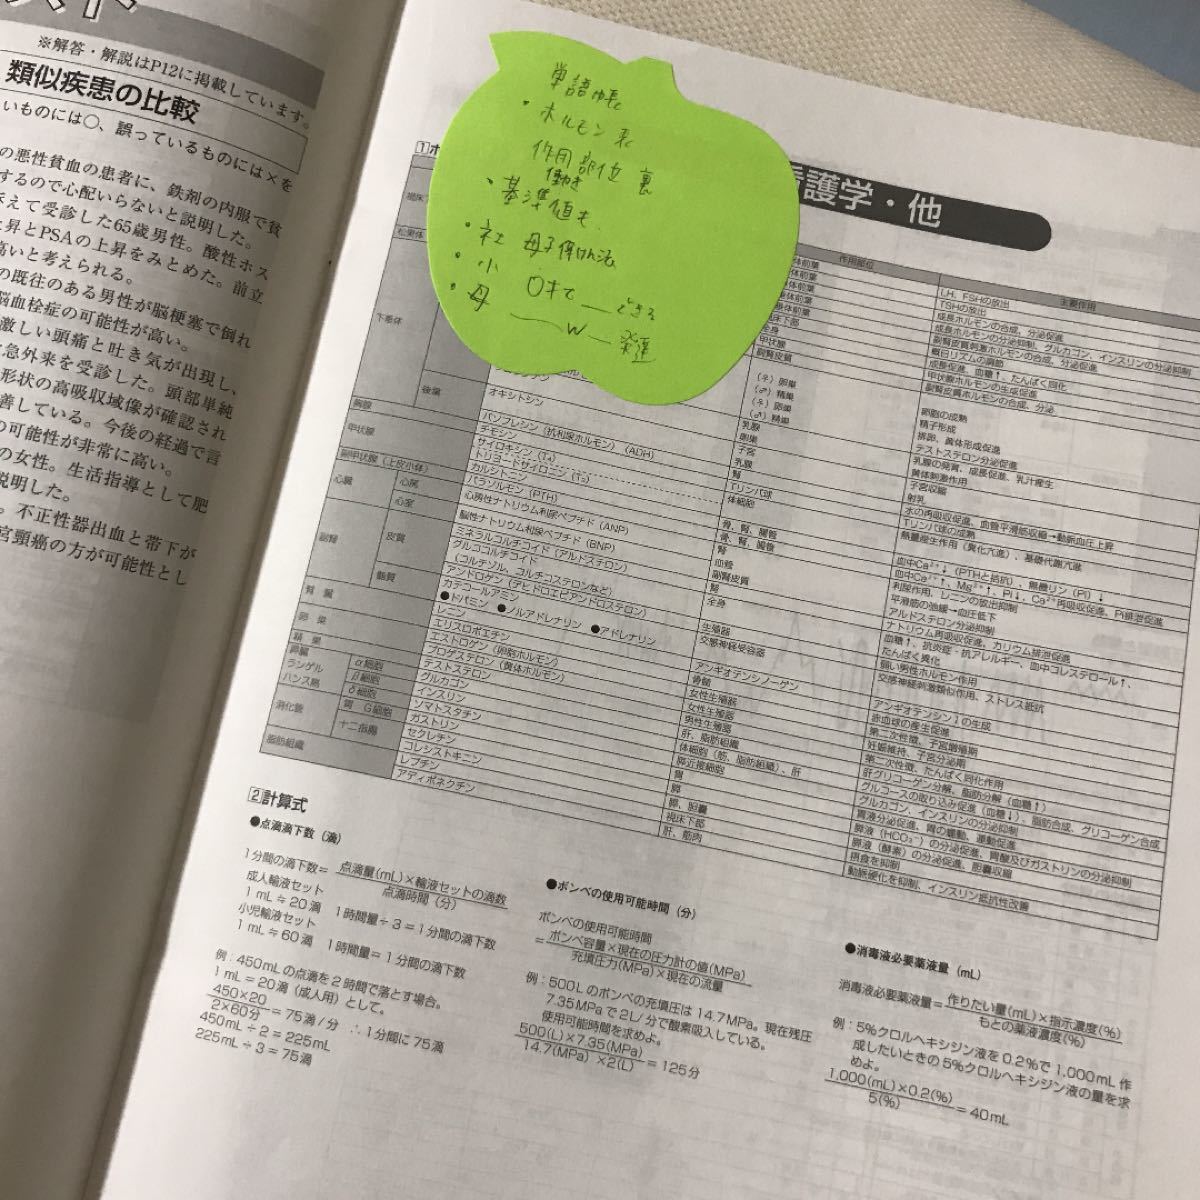 スト
※解答・解説はP12に掲載しています。
類似疾患の比較
いものには○、誤っているものには×を
の悪性貧血の患者に、鉄剤の内服で貧
するので心配いらないと説明した。
訴えて受診した65歳男性。酸性ホス
昇とPSAの上昇をみとめた。前立
高いと考えられる。
の既往のある男性が脳梗塞で倒れ
脳血栓症の可能性が高い。
激しい頭痛と吐き気が出現し、
急外来を受診した。頭部単純
形状の高吸収域像が確認され
善している。今後の経過で言
の可能性が非常に高い。
の女性。生活指導として肥
説明した。
。不正性器出血と帯下が
宮頸癌の方が可能性とし
単語帳
・ホルモン 表
作用部位 裏
働き
・基準値も
・社 母子保健法
・小 〇才で
・母
発達
看護学・他
1 ホ
作用部位
主要作用
視床
松果体
下垂体
後葉
胸腺
甲状腺
副甲状腺（上皮小体）
心臓
心房
心室
副腎
皮質
髄質
腎臓
卵巣
精巣
膵臓
ランゲルハンス島
α細胞
β細胞
δ細胞
消化管
胃 G細胞
十二指腸
脂肪組織
オキシトシン
バソプレシン（抗利尿ホルモン）（ADH）
チモシン
サイロキシン（T₄）
トリヨードサイロニン（T₃）
カルシトニン
パラソルモン（PTH）
心房性ナトリウム利尿ペプチド（ANP）
脳性ナトリウム利尿ペプチド（BNP）
ミネラルコルチコイド（アルドステロン）
グルココルチコイド
（コルチゾル、コルチコステロンなど）
アンドロゲン（デヒドロエピアンドロステロン）
カテコールアミン
●ドパミン ●ノルアドレナリン ●アドレナリン
レニン
エリスロポエチン
エストロゲン（卵胞ホルモン）
プロゲステロン（黄体ホルモン）
テストステロン
グルカゴン
インスリン
ソマトスタチン
ガストリン
セクレチン
コレシストキニン
レプチン
アディポネクチン
体前葉
体前葉
体前葉
体前葉
床下部
全身
甲状腺
副腎皮質
（♀）卵巣
（♂）精巣
（♀）卵巣
（♂）精巣
乳腺
卵巣
子宮
乳腺
腎
Tリンパ球
体細胞
骨、腎、腸管
骨、腎、腸管
腎
血管
副腎皮質
腎
全身
生殖器
交感神経受容器
アンギオテンシノーゲン
骨髄
女性生殖器
女性生殖器
男性生殖器
肝、脂肪組織
体細胞（筋、脂肪組織）、肝
膵近接細胞
胃
膵
膵、胆嚢
視床下部
肝、筋肉
LH、FSHの放出
TSHの放出
成長ホルモンの合成、分泌促進
成長ホルモンの分泌抑制、グルカゴン、インスリンの分泌抑制
副腎皮質刺激ホルモンの合成、分泌促進
概日リズムの調節
成長促進、血糖↑、たんぱく同化
甲状腺ホルモンの生成促進
副腎皮質ホルモンの合成、分泌
卵胞の成熟
精子形成
排卵、黄体形成促進
テストステロン分泌促進
乳腺の発育、成長促進、乳汁産生
黄体刺激作用
子宮収縮
射乳
水の再吸収促進、血管平滑筋収縮→動脈血圧上昇
Tリンパ球の成熟
熱量産生作用（異化亢進）、基礎代謝亢進
血中Ca²⁺↓（PTHと拮抗）、無機リン（Pi）↓
血中Ca²⁺↑、Mg²⁺↑、Pi↓、Ca²⁺再吸収促進、Pi排泄促進
利尿作用、レニンの放出抑制
平滑筋の弛緩→血圧低下
アルドステロン分泌抑制
ナトリウム再吸収促進、カリウム排泄促進
血糖↑、抗炎症・抗アレルギー、血中コレステロール↑、
たんぱく異化
弱い男性ホルモン作用
交感神経刺激類似作用、ストレス抵抗
アンギオテンシンⅠの生成
赤血球の産生促進
第二次性徴、子宮増殖期
妊娠維持、子宮分泌期
第二次性徴、たんぱく同化作用
肝グリコーゲン分解、脂肪分解（血糖↑）
グルコースの取り込み促進（血糖↓）、脂肪合成、グリコーゲン合成
グルカゴン、インスリンの分泌抑制
胃液分泌促進、胃の蠕動、運動促進
膵液（HCO₃⁻）の分泌促進、胃酸及びガストリンの分泌抑制
膵液（酵素）の分泌促進、胆嚢収縮
摂食を抑制
動脈硬化を抑制、インスリン抵抗性改善
2 計算式
●点滴滴下数（滴）
1分間の滴下数＝ 点滴量(mL)×輸液セットの滴数
点滴時間（分）
成人輸液セット
1mL≒20滴 1時間量÷3＝1分間の滴下数
小児輸液セット
1mL≒60滴 1時間量＝1分間の滴下数
例：450mLの点滴を2時間で落とす場合。
1mL＝20滴（成人用）として。
450×20
2×60分
＝75滴/分 ∴1分間に75滴
450mL÷2＝225mL
225mL÷3＝75滴
●ボンベの使用可能時間（分）
ボンベの使用可能時間
＝ボンベ容量×現在の圧力計の値(MPa)
充填圧力(MPa)×現在の流量
例：500Lのボンベの充填圧は14.7MPa。現在残圧
7.35MPaで2L/分で酸素吸入している。
使用可能時間を求めよ。
500(L)×7.35(MPa)
14.7(MPa)×2(L)
＝125分
●消毒液必要薬液量（mL）
消毒液必要薬液量＝作りたい量(mL)×指示濃度(%)
もとの薬液濃度(%)
例：5％クロルヘキシジン液を0.2％で1,000mL作
成したいときの5％クロルヘキシジン液の量を求
めよ。
1,000(mL)×0.2(%)
5(%)
＝40mL